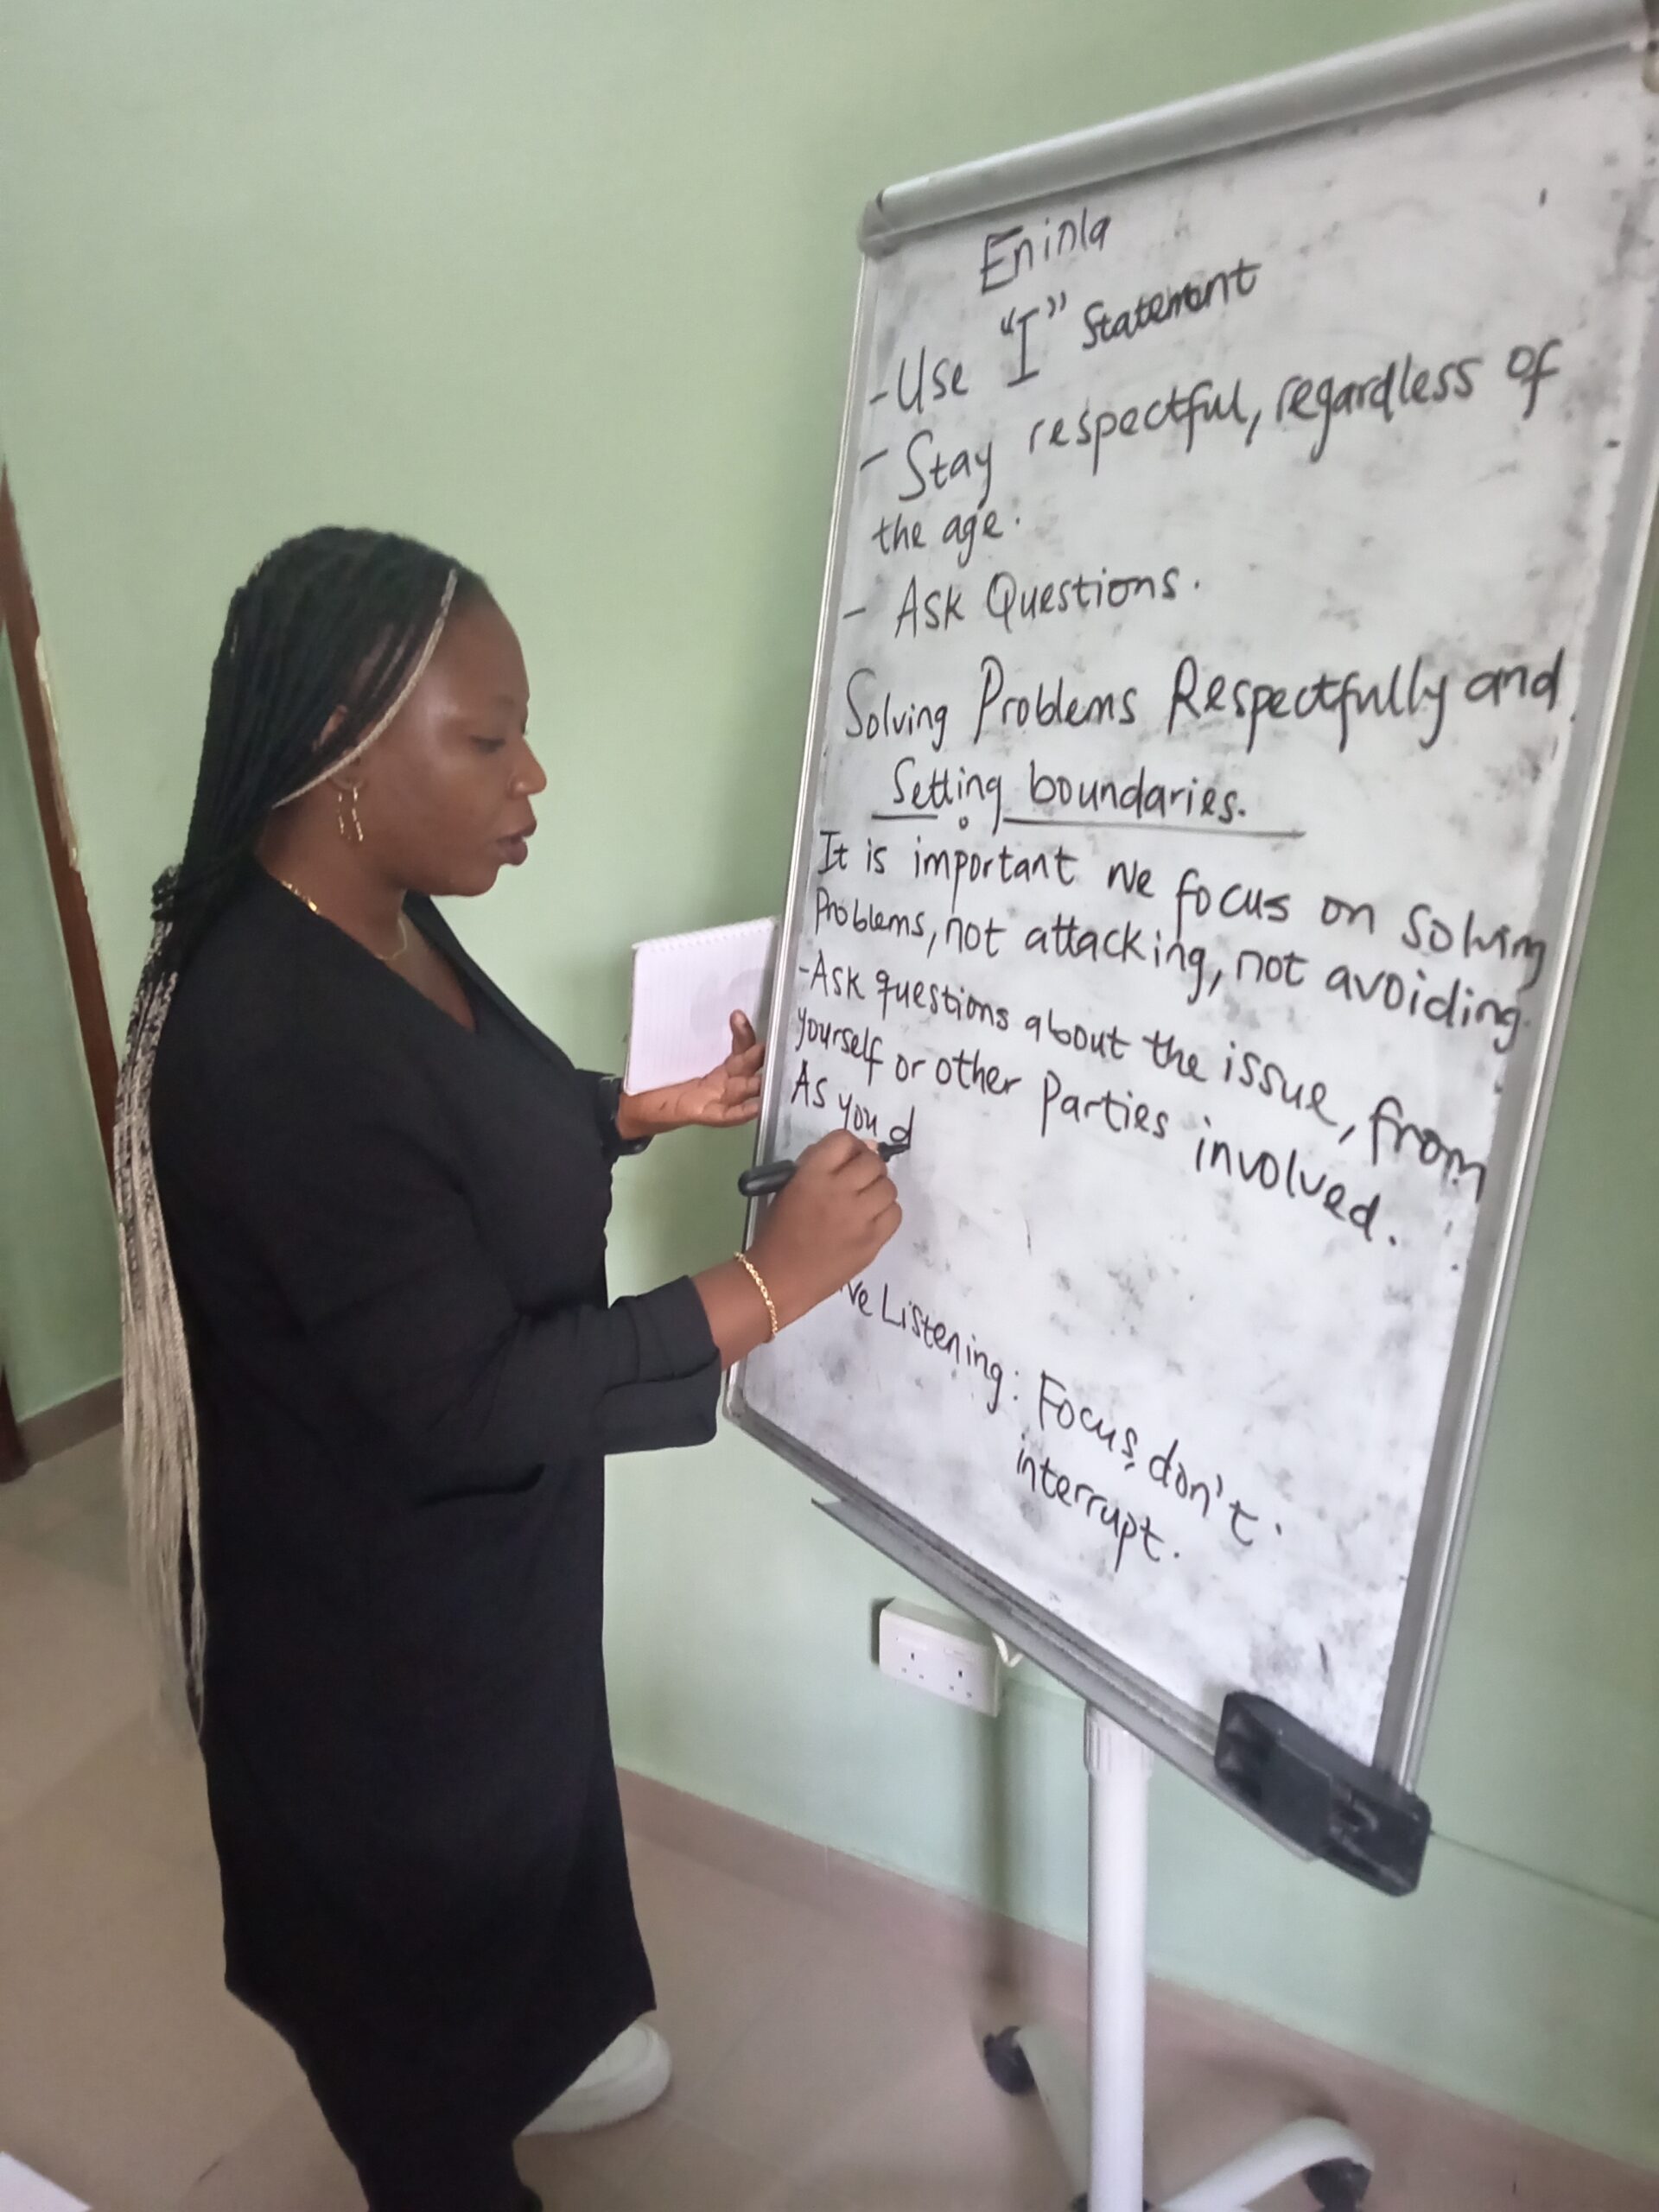 Eninla
- Use "I" Statement
- Stay respectful, regardless of
the age.
- Ask Questions.
Solving Problems Respectfully and
Setting boundaries.
It is important we focus on solving
Problems, not attacking, not avoiding.
- Ask questions about the issue, from
yourself or other Parties involved.
As you d
ve Listening: Focus, don't
interrupt.